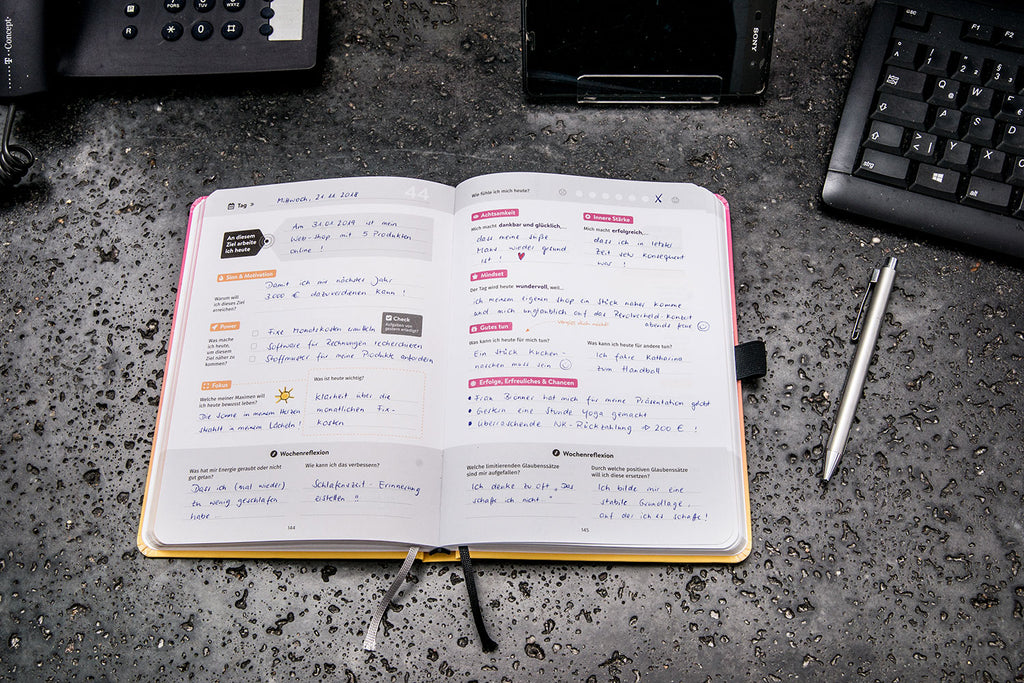 T··Concept
PQRS
TUV
WXYZ
R
*
0
#
SONY
esc
F1
F2
F3
!
1
"
2 ²
§
3 ³
Q
@
W
E
A
S
D
>
<
|
Y
X
C
strg
Alt
Tag >
Mittwoch, 21.11.2018
44
An diesem
Ziel arbeite
ich heute
Am 31.01.2019 ist mein
Web-Shop mit 5 Produkten
online!
Sinn & Motivation
Warum will
ich dieses Ziel
erreichen?
Damit ich mir nächstes Jahr
3.000 € dazuverdienen kann!
Power
Was mache
ich heute,
um diesem
Ziel näher zu
kommen?
Check
Aufgaben von
gestern erledigt?
Fixe Monatskosten ermitteln
Software für Rechnungen recherchieren
Stoffmuster für meine Produkte anfordern
Fokus
Welche meiner Maximen will
ich heute bewusst leben?
Die Sonne in meinem Herzen
strahlt in meinem Lächeln!
Was ist heute wichtig?
Klarheit über die
monatlichen Fix-
kosten
Wochenreflexion
Was hat mir Energie geraubt oder nicht
gut getan?
Dass ich (mal wieder)
zu wenig geschlafen
habe
Wie kann ich das verbessern?
Schlafenszeit-Erinnerung
erstellen!!
144
Wie fühle ich mich heute?
X
Achtsamkeit
Mich macht dankbar und glücklich...
dass meine süße
Maus wieder gesund
ist! ♥
Innere Stärke
Mich macht erfolgreich...
dass ich in letzter
Zeit sehr konsequent
war!
Mindset
Der Tag wird heute wundervoll, weil...
ich meinem eigenen Shop ein Stück näher komme
und mich unglaublich auf das Revolverheld-Konzert
abends freue ☺
Gutes tun
Vergiss dich nicht!
Was kann ich heute für mich tun?
Ein Stück Kuchen-
naschen muss sein ☺
Was kann ich heute für andere tun?
Ich fahre Katharina
zum Handball
Erfolge, Erfreuliches & Chancen
• Frau Brunner hat mich für meine Präsentation gelobt
• Gestern eine Stunde Yoga gemacht
• überraschende NK-Rückzahlung → 200 €!
Wochenreflexion
Welche limitierenden Glaubenssätze
sind mir aufgefallen?
Ich denke zu oft „Das
schaffe ich nicht"
Durch welche positiven Glaubenssätze
will ich diese ersetzen?
Ich bilde mir eine
stabile Grundlage,
auf der ich es schaffe!
145